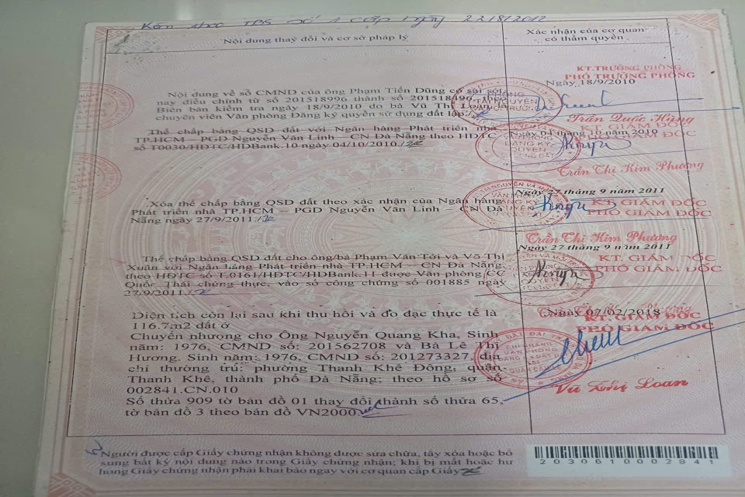 Kèm theo TBS số 1 cấp ngày 22/8/2012
Nội dung thay đổi và cơ sở pháp lý
Xác nhận của cơ quan
có thẩm quyền
Nội dung về số CMND của ông Phạm Tiến Dũng có sai sót
nay điều chỉnh từ số 201518996 thành số 201518496 theo
Biên bản kiểm tra ngày 18/9/2010 do bà Vũ Thị Loan là
chuyên viên Văn phòng Đăng ký quyền sử dụng đất lập
Ngày 18/9/2010
KT.TRƯỞNG PHÒNG
PHÓ TRƯỞNG PHÒNG
Trần Quốc Hùng
Thế chấp bằng QSD đất với Ngân hàng Phát triển nhà
TP.HCM – PGD Nguyễn Văn Linh – CN Đà Nẵng theo HĐTC
số T0030/HĐTC/HDBank.10 ngày 04/10/2010
Ngày 04 tháng 10 năm 2010
GIÁM ĐỐC
Trần Thị Kim Phương
Xóa thế chấp bằng QSD đất theo xác nhận của Ngân hàng
Phát triển nhà TP.HCM – PGD Nguyễn Văn Linh – CN Đà
Nẵng ngày 27/9/2011
Ngày 27 tháng 9 năm 2011
KT. GIÁM ĐỐC
PHÓ GIÁM ĐỐC
Trần Thị Kim Phương
Thế chấp bằng QSD đất cho ông/bà Phạm Văn Tới và Võ Thị
Xuân với Ngân hàng Phát triển nhà TP.HCM – CN Đà Nẵng
theo HĐTC số T.0161/HĐTC/HDBank.11 được Văn phòng CC
Quốc Thái chứng thực, vào sổ công chứng số 001885 ngày
27/9/2011
Ngày 27 tháng 9 năm 2011
KT. GIÁM ĐỐC
PHÓ GIÁM ĐỐC
Diện tích còn lại sau khi thu hồi và đo đạc thực tế là
116.7m2 đất ở
Chuyển nhượng cho Ông Nguyễn Quang Kha, Sinh
năm: 1976, CMND số: 201562708 và Bà Lê Thị
Hương, Sinh năm: 1976, CMND số: 201273327, địa
chỉ thường trú: phường Thanh Khê Đông, quận
Thanh Khê, thành phố Đà Nẵng; theo hồ sơ số
002841.CN.010
Số thửa 909 tờ bản đồ 01 thay đổi thành số thửa 65,
tờ bản đồ 3 theo bản đồ VN2000
Ngày 07/02/2018
KT. GIÁM ĐỐC
PHÓ GIÁM ĐỐC
Vũ Loan
Người được cấp Giấy chứng nhận không được sửa chữa, tẩy xóa hoặc bổ
sung bất kỳ nội dung nào trong Giấy chứng nhận; khi bị mất hoặc hư
hỏng Giấy chứng nhận phải khai báo ngay với cơ quan cấp Giấy
2030610002841